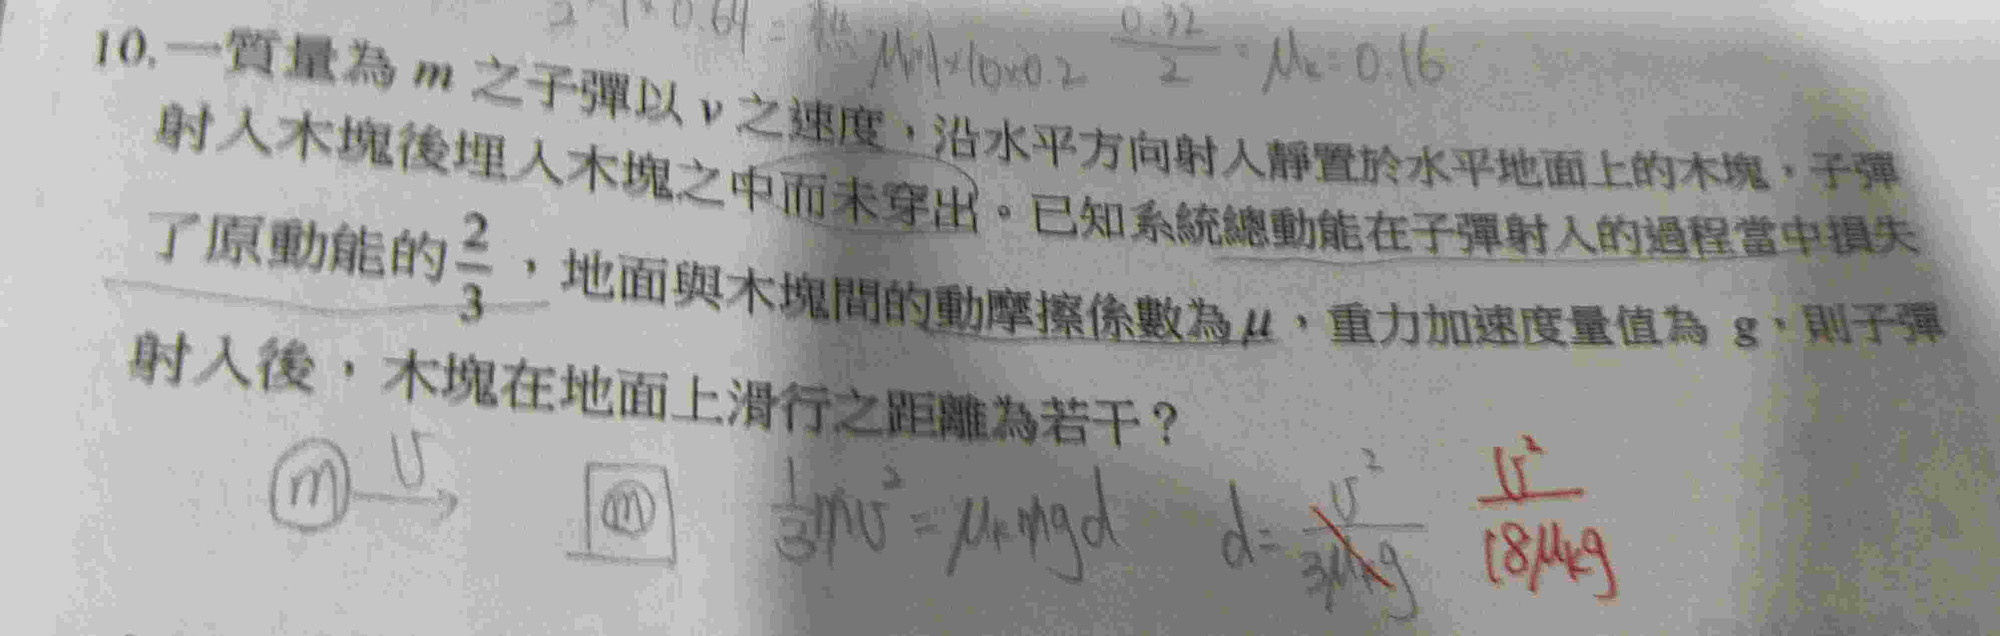 1×0.64=
μ×1×10×0.2 0.32/2 μk=0.16
10.一質量為 m 之子彈以 v 之速度,沿水平方向射入靜置於水平地面上的木塊,子彈
射入木塊後埋入木塊之中而未穿出。已知系統總動能在子彈射入的過程當中損失
了原動能的2/3,地面與木塊間的動摩擦係數為μ,重力加速度量值為 g,則子彈
射入後,木塊在地面上滑行之距離為若干?
m v m 1/3mv²=μkmgd d=v²/3μkg v²/18μkg